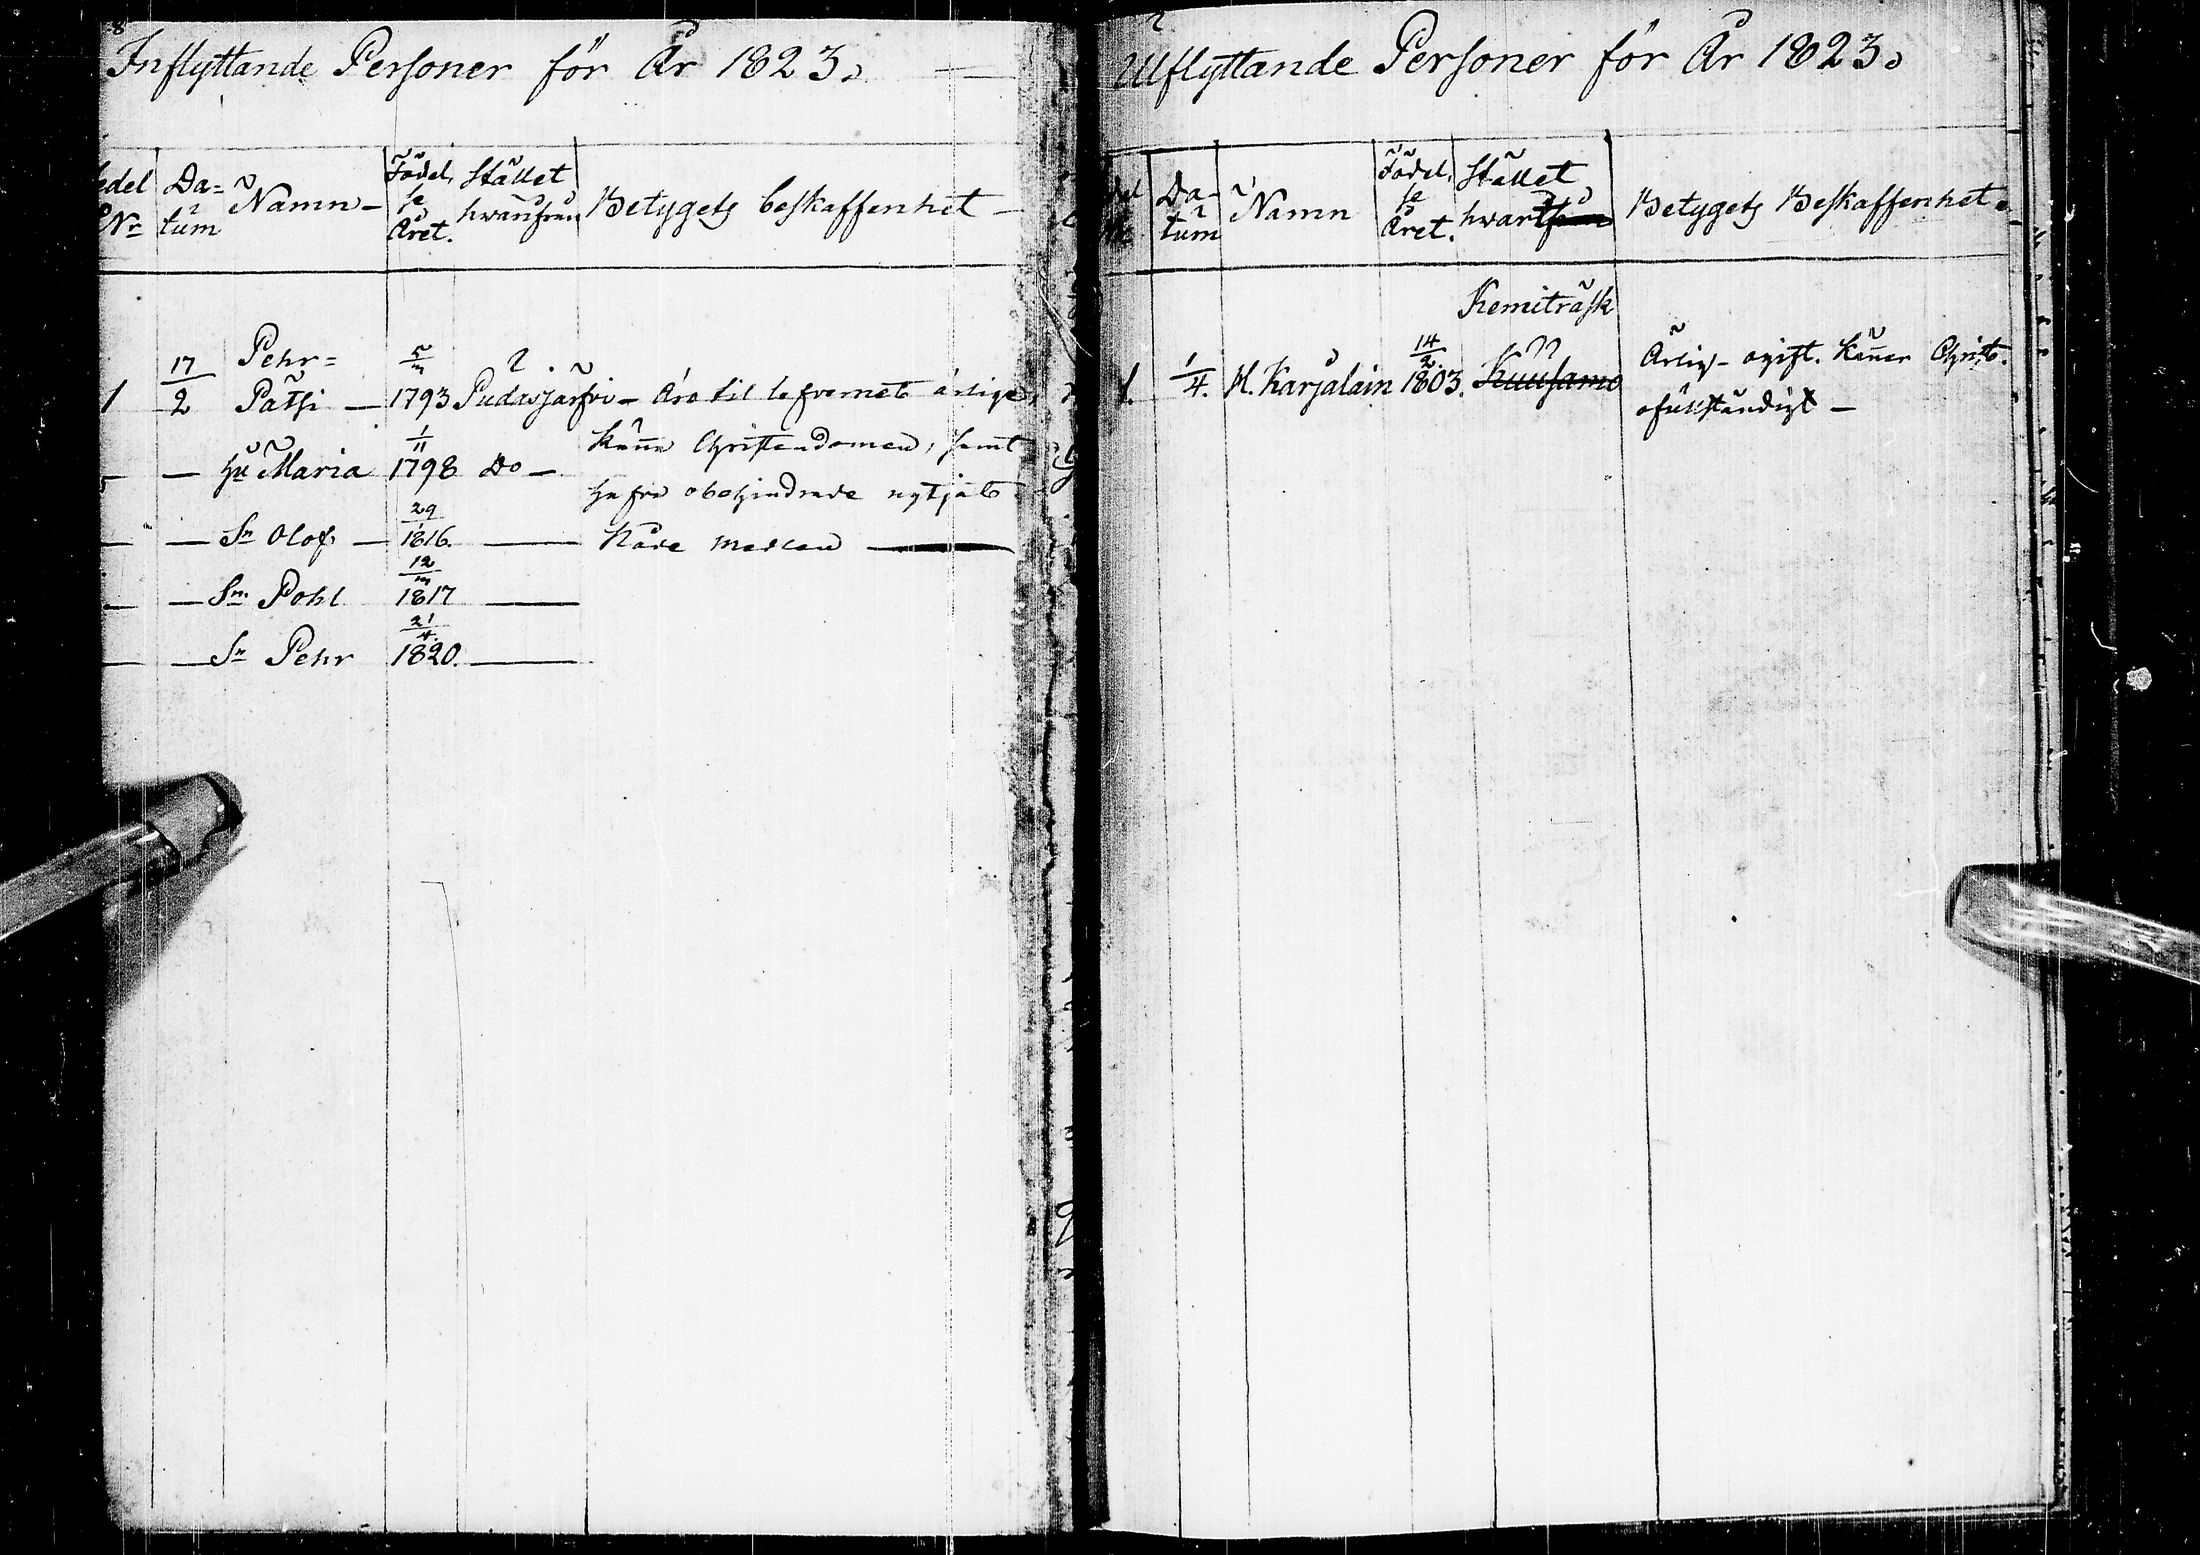 Inflyttande Personer för År 1823.
edel Nr Datum Namn Födelse Året. Stället hwarifrån Betygets beskaffenhet
1 17/2 Pehr Pätsi 5/3 1793 Pudasjärfvi Äro til lefvernet ärlige,
Hu Maria 1/11 1798 Do känna Christendomen, samt
hafva obehindrade nytjat
Sn Olof 29/1 1816. Nåde Medlen
Sn Pohl 12/3 1817
Sn Pehr 21/4. 1820.
Utflyttande Personer för År 1823.
Datum Namn Födelse Året. Stället hwart Betygets Beskaffenhet.
Kemiträsk
1. 1/4. H. Karjalain 14/2. 1803. Kuusamo Ärlig ogift. Känner Christ.
ofullständigt